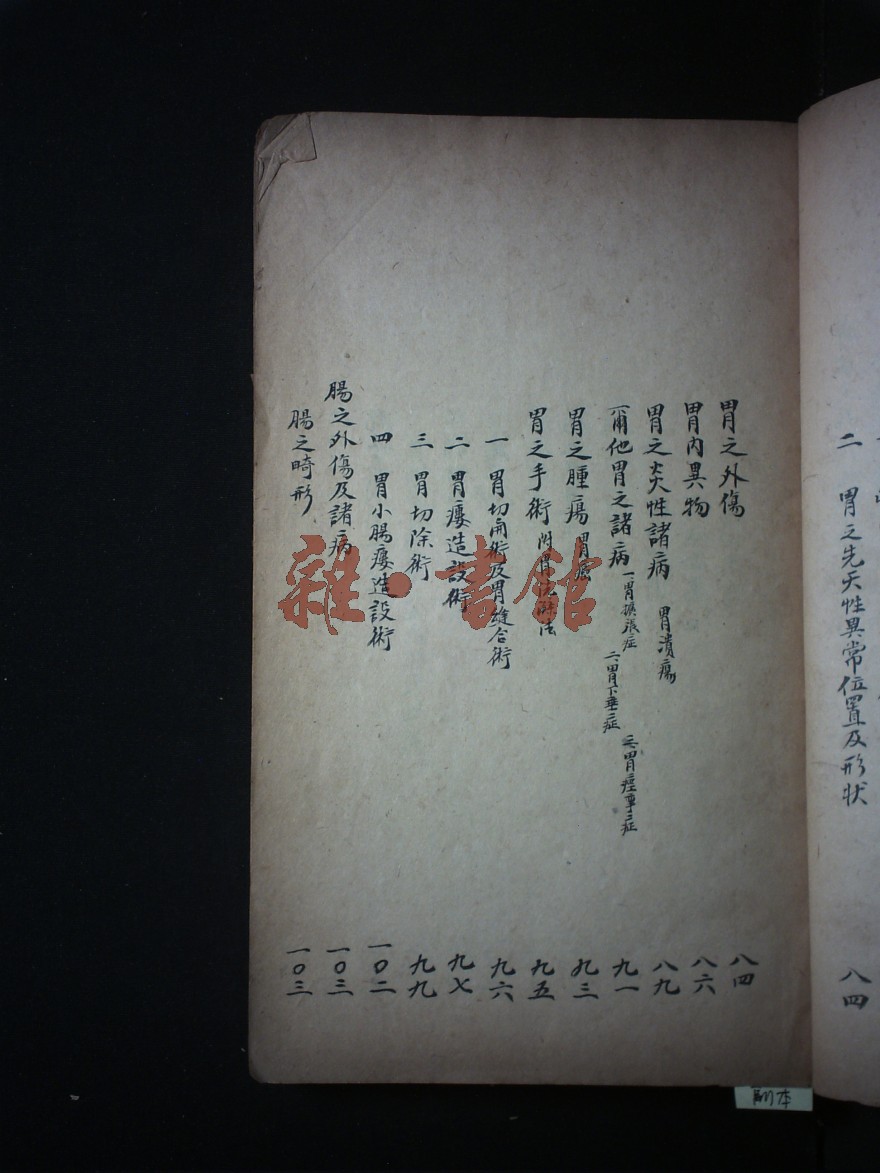 二 胃之先天性異常位置及形状 八四
胃之外傷 八四
胃内異物 八六
胃之炎性諸病 胃潰瘍 八九
爾他胃之諸病 一胃擴張症 二、胃下垂症 三、胃痙攣症 九一
胃之腫瘍 胃癌 九三
胃之手術 附胃洗滌法 九五
一 胃切開術及胃縫合術 九六
二 胃瘻造設術 九七
三 胃切除術 九九
四 胃小腸瘻造設術 一〇二
腸之外傷及諸病 一〇三
腸之畸形 一〇三
雜·書館
副本